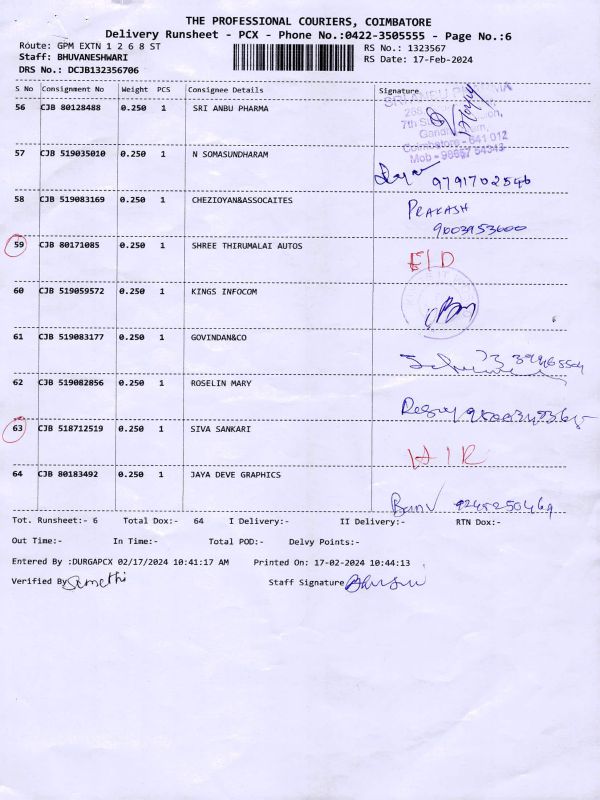 THE PROFESSIONAL COURIERS, COIMBATORE
Delivery Runsheet - PCX - Phone No.:0422-3505555 - Page No.:6
Route: GPM EXTN 1 2 6 8 ST RS No.: 1323567
Staff: BHUVANESHWARI RS Date: 17-Feb-2024
DRS No.: DCJB132356706
S No Consignment No Weight PCS Consignee Details Signature
56 CJB 80128488 0.250 1 SRI ANBU PHARMA
7th
Coimbatore - 641 012
Mob -
57 CJB 519035010 0.250 1 N SOMASUNDHARAM
9791702546
58 CJB 519083169 0.250 1 CHEZIOYAN&ASSOCAITES PRAKASH
9003953600
59 CJB 80171085 0.250 1 SHREE THIRUMALAI AUTOS E/D
60 CJB 519059572 0.250 1 KINGS INFOCOM
61 CJB 519083177 0.250 1 GOVINDAN&CO
62 CJB 519082856 0.250 1 ROSELIN MARY
63 CJB 518712519 0.250 1 SIVA SANKARI
64 CJB 80183492 0.250 1 JAYA DEVE GRAPHICS
Tot. Runsheet:- 6 Total Dox:- 64 I Delivery:- II Delivery:- RTN Dox:-
Out Time:- In Time:- Total POD:- Delvy Points:-
Entered By :DURGAPCX 02/17/2024 10:41:17 AM Printed On: 17-02-2024 10:44:13
Verified By Staff Signature